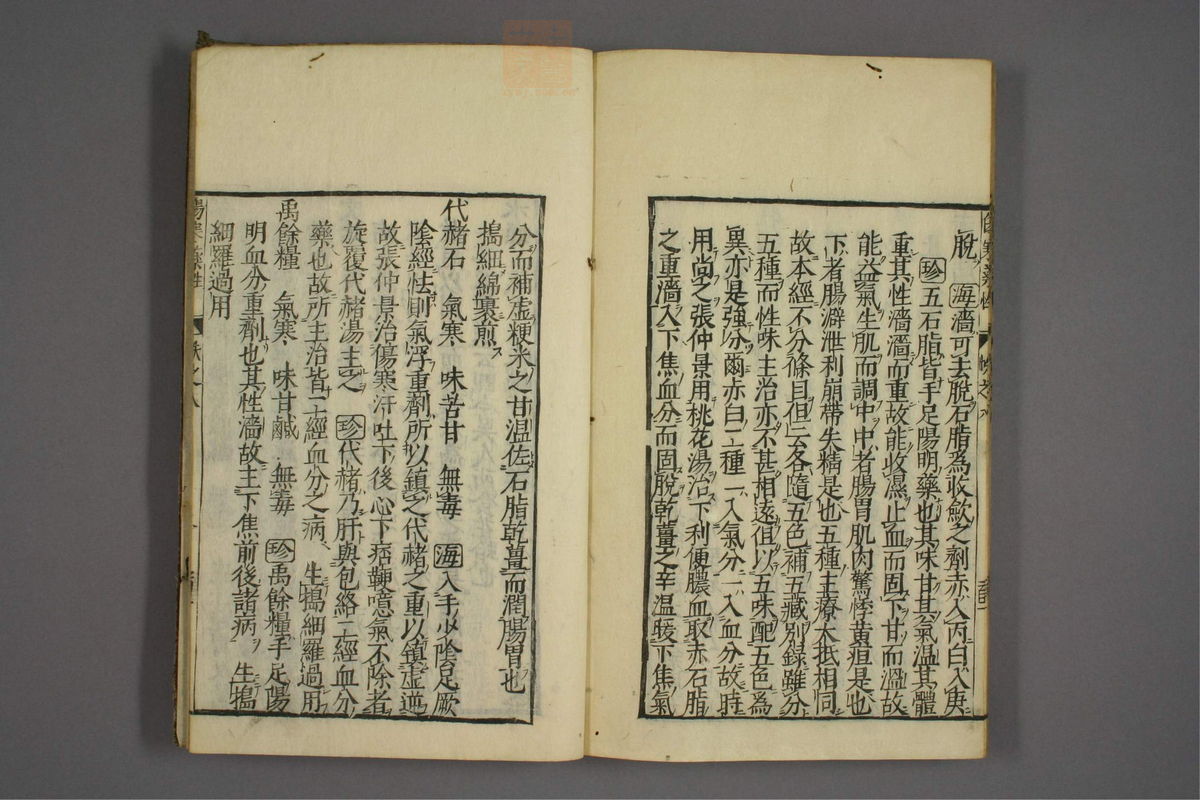 脫 海濇可去脫石脂為收斂之劑赤入丙白入庚
珍五石脂皆手足陽明藥也其味甘其氣溫其體
重其性濇濇而重故能收濕止血而固下甘而溫故
能益氣生肌而調中中者腸胃肌肉驚悸黃疸是也
下者腸澼泄利崩帶失精是也五種主療大抵相同
故本經不分條目但云各隨五色補五藏別錄雖分
五種而性味主治亦不甚相遠但以五味配五色為
異亦是強分爾赤白二種一入氣分一入血分故時
用尚之張仲景用桃花湯治下利便膿血取赤石脂
之重濇入下焦血分而固脫乾薑之辛溫暖下焦氣
分而補虛粳米之甘溫佐石脂乾薑而潤腸胃也
搗細綿裹煎
代赭石 氣寒 味苦甘 無毒 海入手少陰足厥
陰經怯則氣浮重劑所以鎮之代赭之重以鎮虛逆
故張仲景治傷寒汗吐下後心下痞鞕噫氣不除者
旋覆代赭湯主之 珍代赭乃肝與包絡二經血分
藥也故所主治皆二經血分之病 生搗細羅過用
禹餘糧 氣寒 味甘鹹 無毒 珍禹餘糧手足陽
明血分重劑也其性濇故主下焦前後諸病 生搗
細羅過用